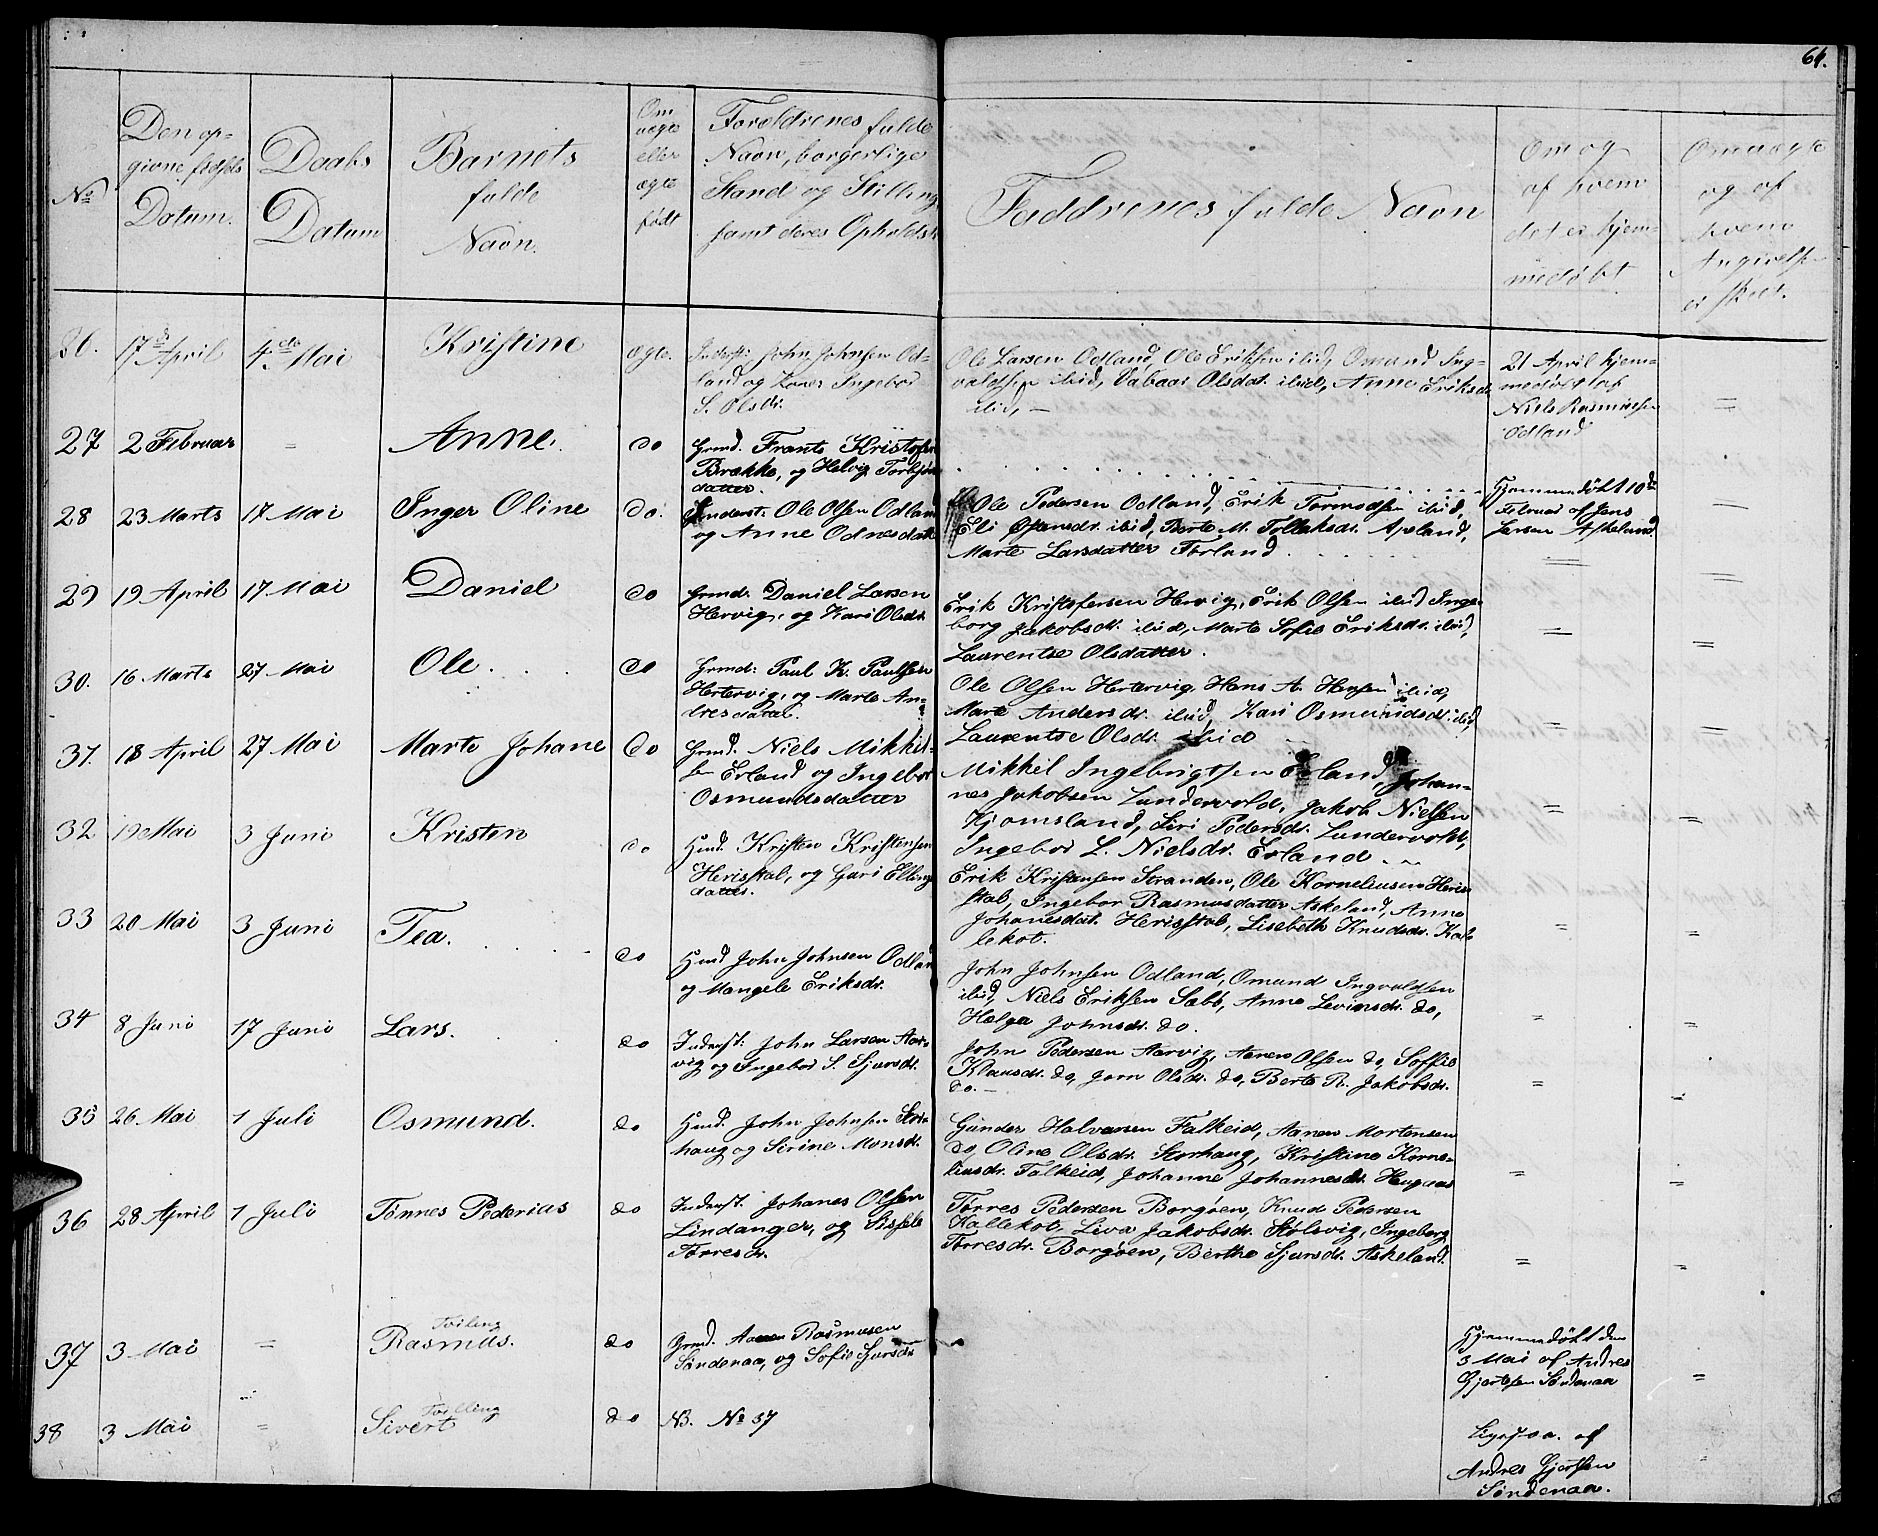 64.
No
Den op-
givne fødsels
Datum.
Daabs
Datum
Barnets
fulde
Navn.
Om
uægte
eller
ægte
født
Forældrenes fulde
Navn, borgerlige
Stand og Stilling
samt deres Opholdst
Faddrenes fulde Navn
Om og
af hvem
det er hjem-
medøbt
Om uægte
og af
hvem
Angivelse
er skeet.
26. 17de April 4de Mai Kristine ægte. Inderst: John Johnsen Od-
land og Kone Ingebor
S. Olsdr.
Ole Larsen Odland, Ole Eriksen ibid, Omund Ing-
valdsen ibid, Valbaar Olsdat. ibid, Anne Eriksdr.
ibid, —
21 April hjem-
medøbt af
Niels Rasmussen
Odland =
27 2 Februar = Anne. do Grmd. Frants Kristofers
Brække, og Helvig Torbjørns
datter.
Hjemmedøbt 10de
Februar af Jens
Larsen Askeland =
28 23 Marts 17 Mai Inger Oline do. Inderst: Ole Olsen Odland
og Anne Odnesdatter
Ole Pedersen Odland, Erik Tormodsen ibid,
Eli Østensdr. ibid, Berte M. Tollaksdr. Apeland,
Marte Larsdatter Førland = =
29 19 April 17 Mai Daniel do Grmd: Daniel Larsen
Hervig, og Kari Olsdr.
Erik Kristofersen Hervig, Erik Olsen ibid Inge-
borg Jakobsdr. ibid, Marte Sofie Eriksdr. ibid,
Laurentse Olsdatter. = =
30. 16 Marts 27 Mai Ole. do Grmd: Paul K. Paulsen
Hertervig, og Marte An-
dresdatter.
Ole Olsen Hertervig, Hans A. Hansen ibid,
Marte Andersdr. ibid, Kari Osmundsdr. ibid,
Laurentse Olsdr. ibid = =
31. 18 April 27 Mai Marte Johane do Grmd: Niels Mikkel-
sen Erland og Ingebor
Osmundsdatter
Mikkel Ingebrigtsen Erland, Johan-
nes Jakobsen Lundervold, Jakob Nielsen
Kjomsland, Siri Pedersdr. Lundervold,
Ingebor L. Nielsdr. Erland = =
32 19 Mai 3 Juni Kristen do Hmd. Kristen Kristensen
Herisstøl, og Guri Ellings
datter
Erik Kristiansen Stranden, Ole Korneliusen Heris-
støl, Ingebor Rasmusdatter Askeland, Anne
Johanesdat. Herisstøl, Lisebeth Knudsdr. Kal-
lekot. = =
33 20 Mai 3 Juni Tea. do Hmd John Johnsen Odland
og Mangele Eriksdr.
John Johnsen Odland, Omund Ingvaldsen
ibid, Niels Eriksen Sæbb, Anne Levinsdr. do,
Helga Johnsdr. do. = =
34 8 Juni 17 Juni Lars. do Inderst: John Larsen Aar-
vig og Ingebor S. Sjursdr.
John Pedersen Aarvig, Aanen Olsen do, Soffie
Klausdr. do, Jorn Olsdr. do, Berte R. Jakobsdr.
do. — = =
35 26 Mai 1 Juli Osmund. do Hmd. John Johnsen Stor-
haug og Sirine Monsdr.
Gunder Halvorsen Falkeid, Aanen Mortensen
do, Oline Olsdr. Storhaug, Kristine Korne-
liusdr. Falkeid, Johanne Johannesdr. Haugaas = =
36 28 April 1 Juli Tønnes Pederias do Inderst. Johanes Olsen
Lindanger, og Sissele
Tørresdr.
Tørres Pedersen Borgøen, Knud Pedersen
Kallekot, Liva Jakobsdr. Stølsvig, Ingeborg
Tørresdr. Borgøen, Berthe Sjursdr. Askeland. = =
37 3 Mai = Tvilling
Rasmus. do Grmd. Aanen Rasmusen
Søndenaa, og Sofie Gjursdr
Hjemmedøbt den
3 Mai af Andres
Gjertsen Søndenaa =
38 3 Mai = Tvilling
Sivert do NB. No 37
Ligesaa af
Andres Gjertsen
Søndenaa.